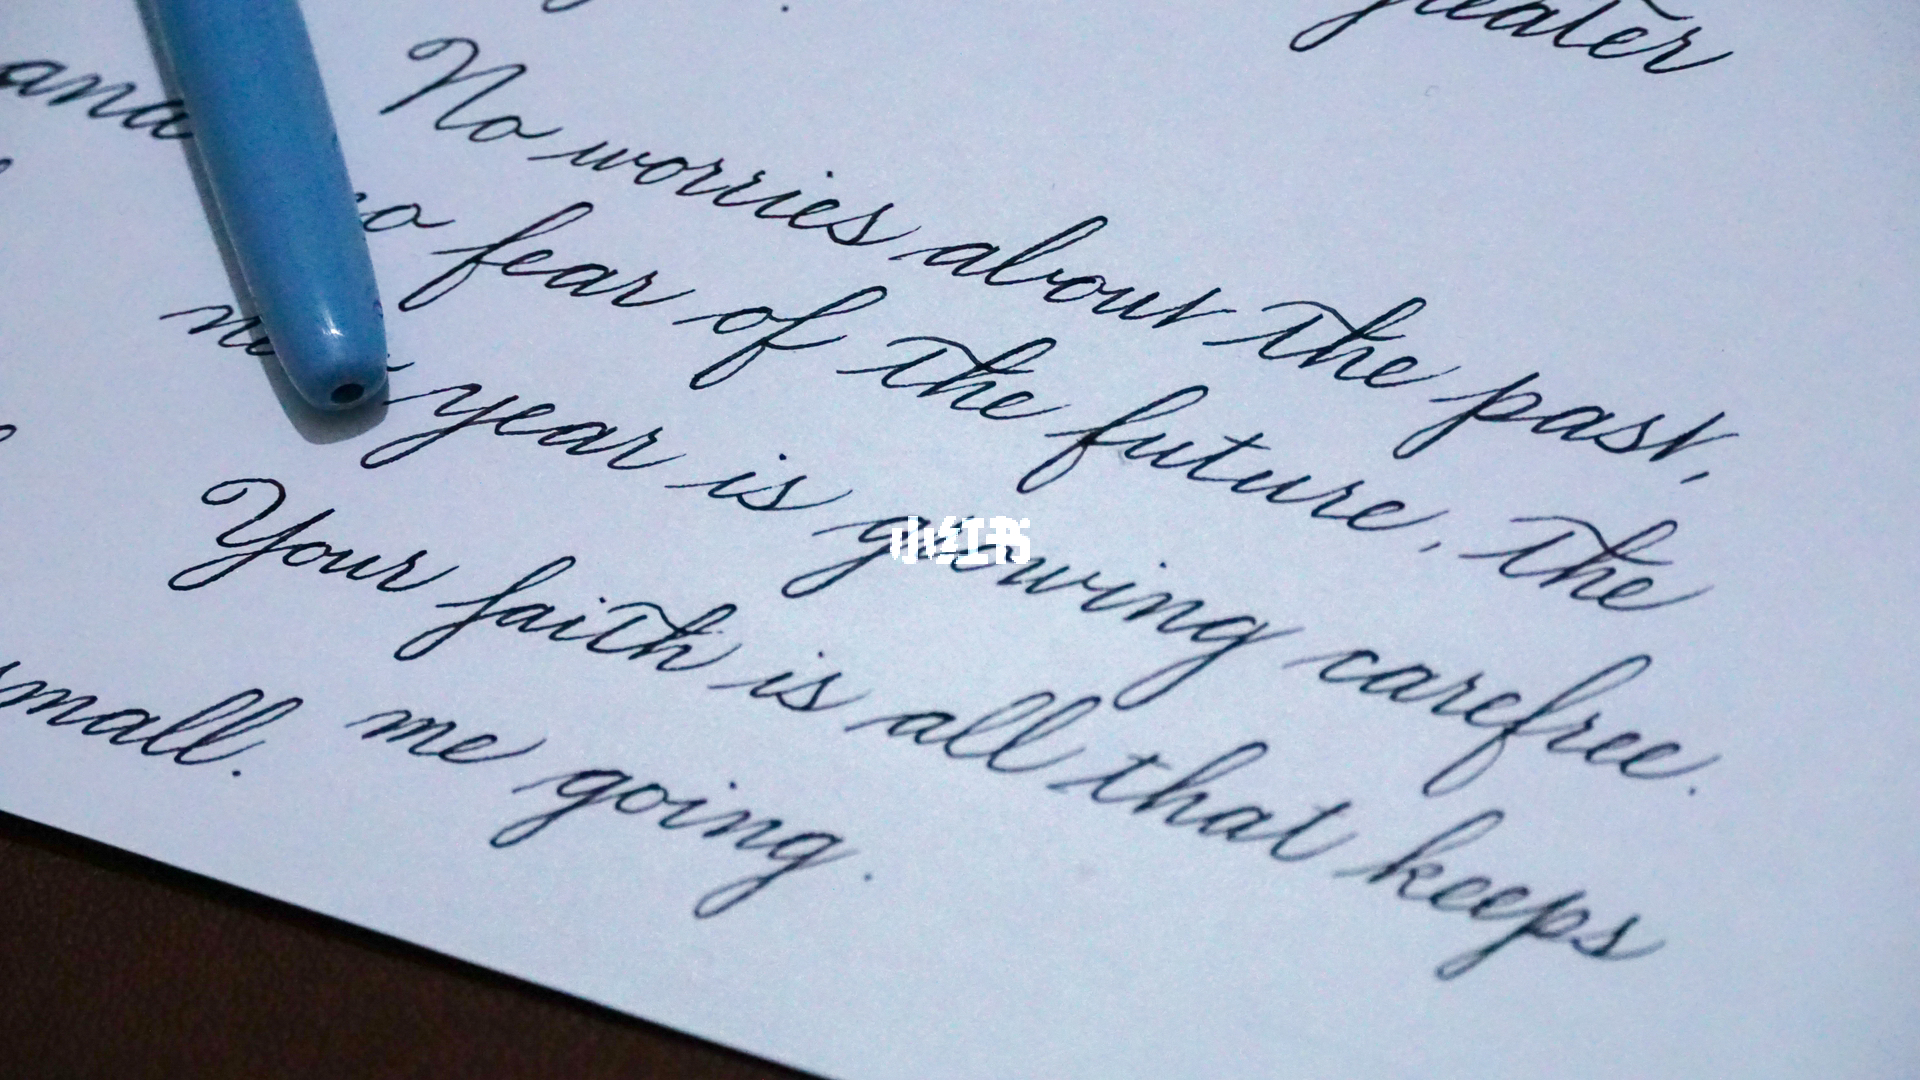 greater
and
No worries about the past,
no fear of the future, the
year is growing carefree.
Your faith is all that keeps
small.
me going.
小红书